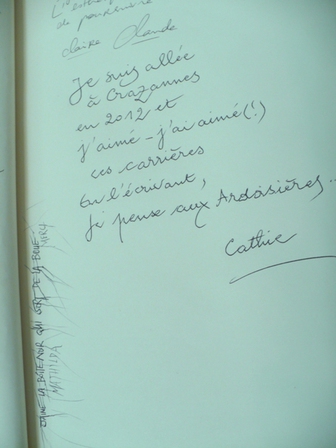 de poursuivre
Claire Claude
Je suis allée
à Crazannes
en 2012 et
j'aimé - j'ai aimé (!)
ces carrières
En l'écrivant,
je pense aux Ardoisières...
Cathie
DE LA BOUE
MATHILDA